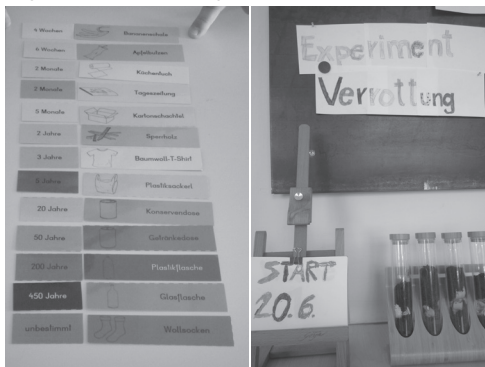 4 Wochen Bananenschale
6 Wochen Apfelbutzen
2 Monate Küchenrolle
2 Monate Tageszeitung
5 Monate Kartonschachtel
2 Jahre Sperrholz
3 Jahre Baumwoll-T-Shirt
6 Jahre Plastiksackerl
20 Jahre Konservendose
50 Jahre Getränkedose
200 Jahre Plastikflasche
450 Jahre Glasflasche
unbestimmt Wollsocken
Experiment
Verrottung
START
20.6.